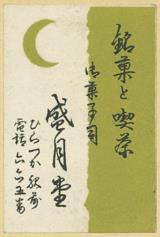 銘菓と喫茶
御菓子司
盛月堂
ひらつか駅前
電話六六五番